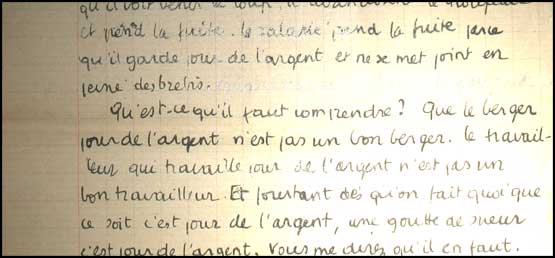 qu'il voit venir le loup, il abandonne le troupeau
et prend la fuite. le salarié prend la fuite parce
qu'il garde pour de l'argent et ne se met point en
peine des brebis.
Qu'est-ce qu'il faut comprendre? Que le berger
pour de l'argent n'est pas un bon berger. le travail-
leur qui travaille pour de l'argent n'est pas un
bon travailleur. Et pourtant dès qu'on fait quoi que
ce soit c'est pour de l'argent, une goutte de sueur
c'est pour de l'argent. Vous me direz qu'il en faut.